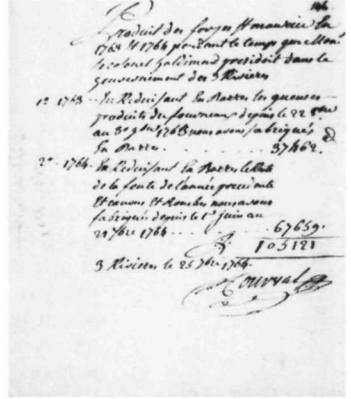 Produit des forges St maurice En
1763 Et 1764 pendant le temps que Mons
le colonel haldimand president dans le
Gouvernement des 3 Rivieres
1º 1763 - En Reduisant En Barres les gueuses
produites du fourneau depuis le 22
au 3e 1763 nous avons fabriqués
En Barres . . . 37462.
2º 1764. En Reduisant En Barres le
de la fonte de l'année precedente
Et nous avons
fabriqués depuis le 1er juin au
29 7bre 1764 . . . . 67659.
105121
3 Rivieres le 25 7bre 1764.
Courval